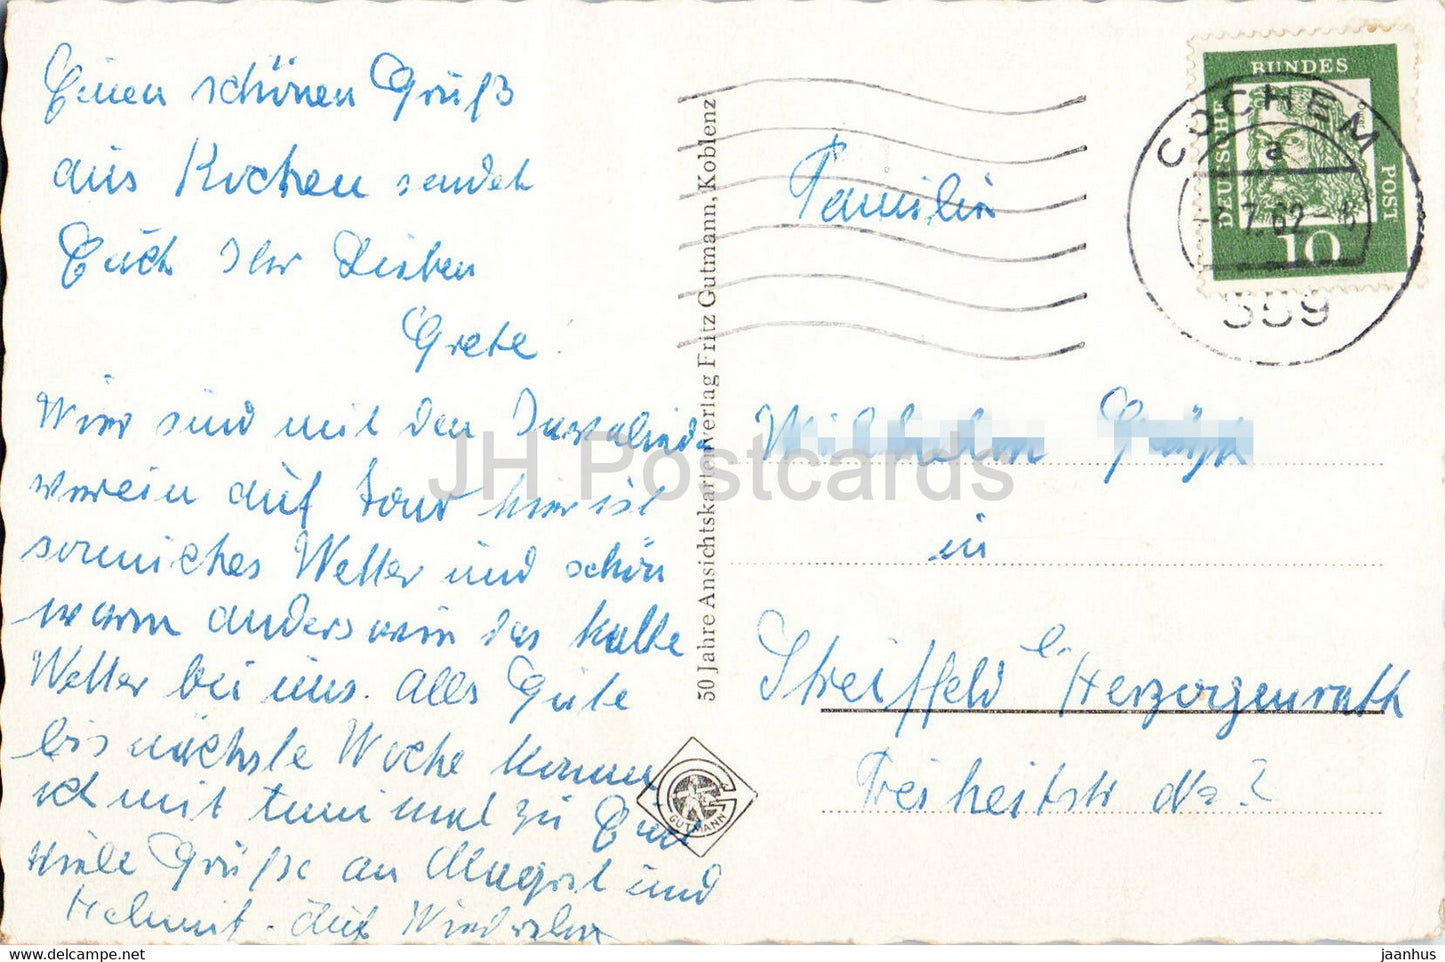 Einen schönen Gruß
aus Kochen sendet
Euch Ihr Lieben
Grete.
Wier sind mit den Invaliden
verein auf Tour hier ist
sonniches Wetter und schön
warm anders wie das kalte
Wetter bei uns. Alls Gute
bis nächste Woche komm
ich mit tuni mal zu Euch
viele Grüße an Magrit und
Helmut. Auf Wiedersehn
50 Jahre Ansichtskartenverlag Fritz Gutmann, Koblenz
GUTMANN
DEUTSCHE BUNDES POST
10
COCHEM
a
-3.7.62-8
559
Familie
Wilhelm
in
Streiffeld b. Herzogenrath
Freiheitstr No 2
JH Postcards
www.delcampe.net
jaanhus